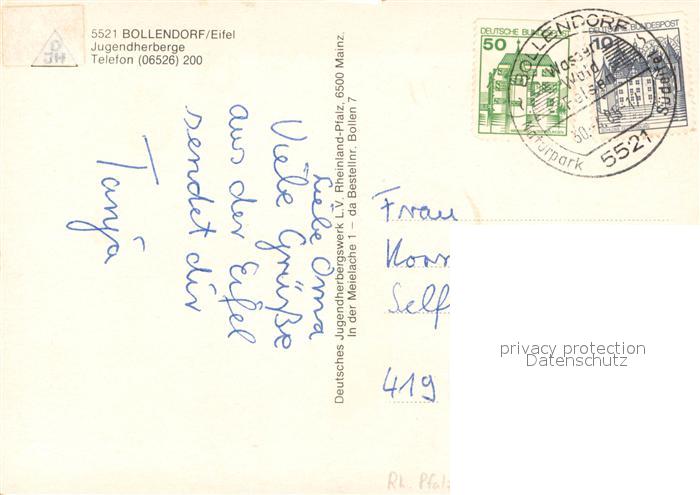 5521 BOLLENDORF/Eifel
Jugendherberge
Telefon (06526) 200
DJH
Liebe Oma
Viele Grüße
aus der Eifel
sendet dir
Tanja
Deutsches Jugendherbergswerk L.V. Rheinland-Pfalz, 6500 Mainz.
In der Meielache 1 – da Bestellnr. Bollen 7
DEUTSCHE BUNDESPOST
50
DEUTSCHE BUNDESPOST
BOLLENDORF
Wasser
Wald
Felsen
Naturpark
5521
Frau
Self
419
privacy protection
Datenschutz
Rh. Pfalz